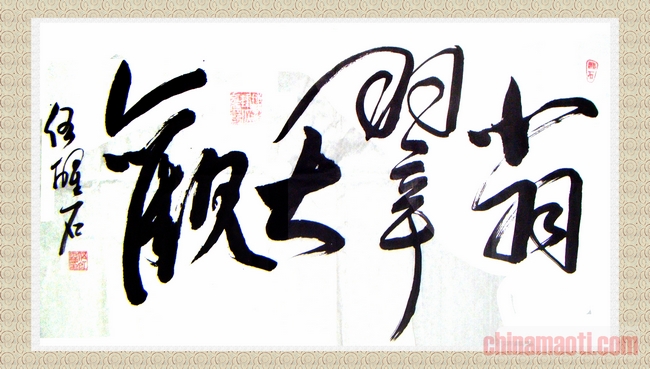 翁翠大觀
任醒石
chinamaoti.com